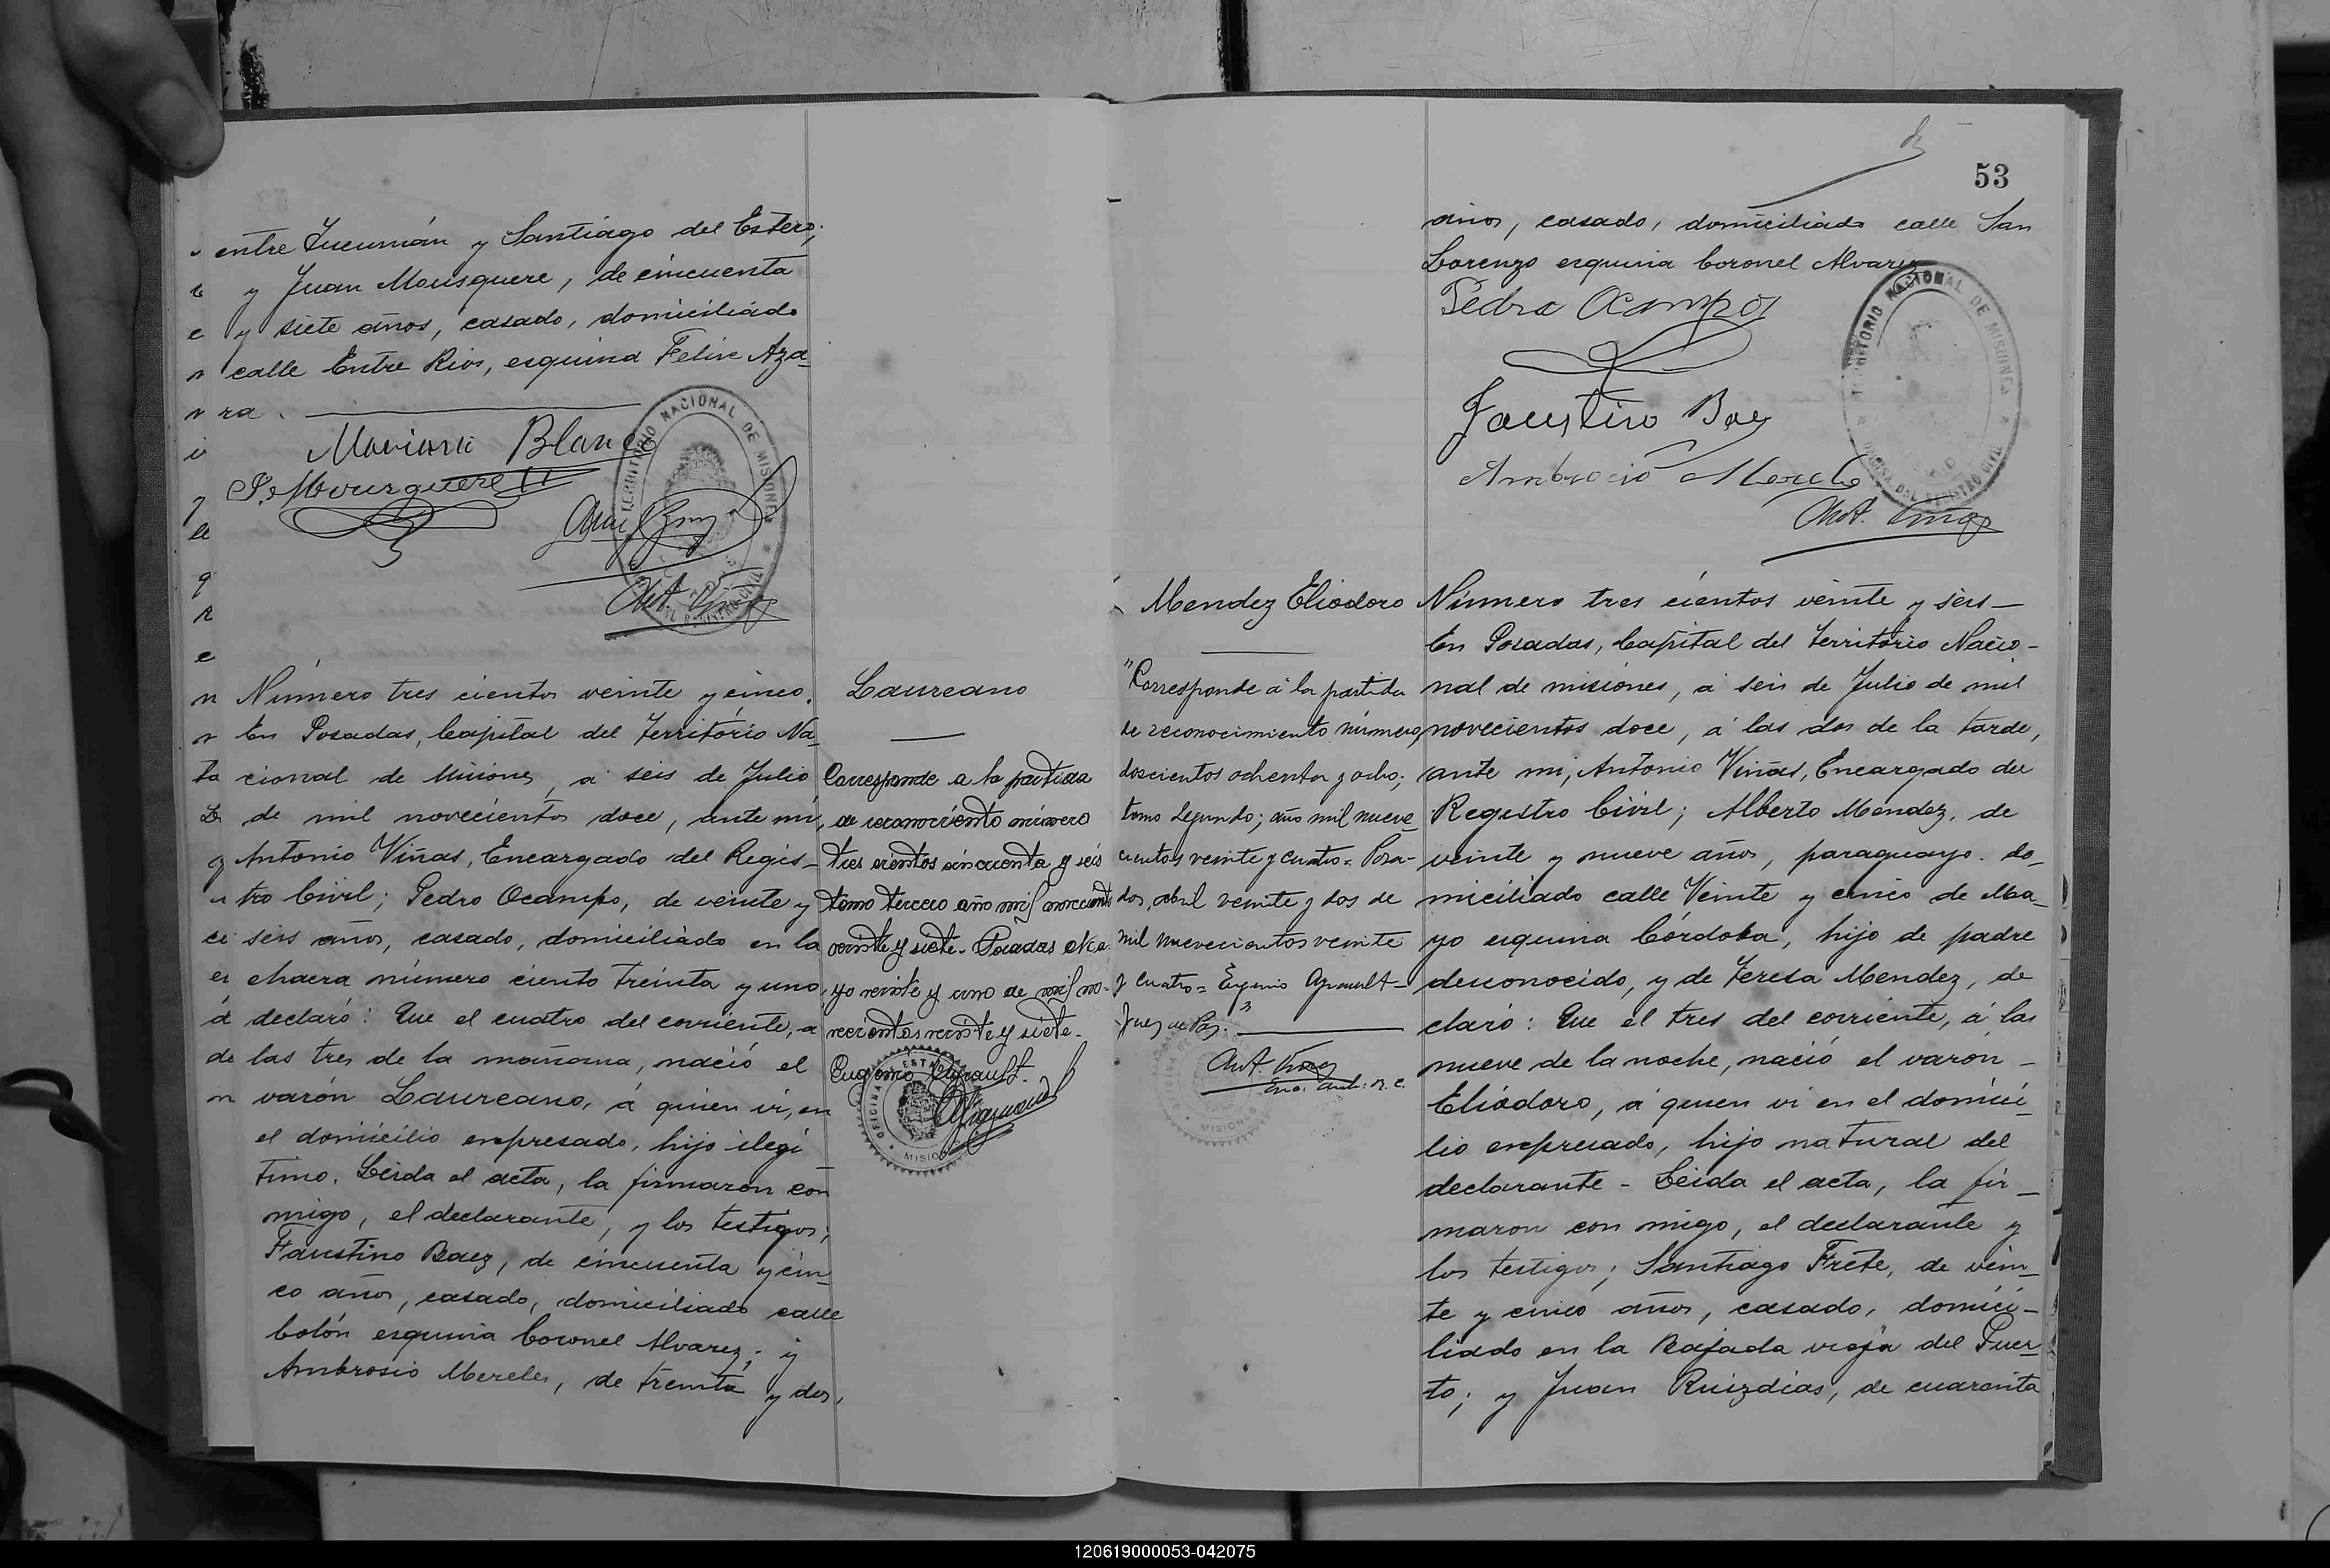 entre Tucumán y Santiágo del Estero;
y Juan Mousquere, de cincuenta
y siete años, casado, domiciliado
calle Entre Rios, esquina Felix Aza-
ra.
Mariano Blanco
P. Mousquere
TERRITORIO NACIONAL DE MISIONES
Ant. Viñas
Número tres cientos veinte y cinco.
En Posadas, Capital del Território Na-
cional de Misiones, a seis de Julio
de mil novecientos doce, ante mi,
Antonio Viñas, Encargado del Regis-
tro Civil; Pedro Ocampo, de veinte y
seis años, casado, domiciliado en la
chacra número ciento treinta y uno,
declaró: Que el cuatro del corriente, a
las tres de la mañana, nació el
varón Laureano, á quien vi, en
el domicilio expresado, hijo ilegi
timo. Leida el acta, la firmaron con
migo, el declarante, y los testigos;
Faustino Baez, de cincuenta y cin-
co años, casado, domiciliado calle
Colón esquina Coronel Alvarez; y
Ambrosio Mereles, de treinta y dos,
Laureano
Corresponde a la partida
de reconociento número
tres cientos cincuenta y seis
tomo tercero año mil novecientos
veinte y siete. Posadas Ma-
yo veinte y uno de mil no-
vecientos veinte y siete.
Eugenio Ayrault.
53
años, casado, domiciliado calle San
Lorenzo esquina Coronel Alvarez
Pedro Ocampos
Faustino Baez
Ambrocio Merele
Ant. Viñas
TERRITORIO NACIONAL DE MISIONES
OFICINA DEL REGISTRO CIVIL
Mendez Eliodoro
"Corresponde á la partida
de reconocimiento número
doscientos ochenta y ocho;
tomo segundo; año mil nueve-
cientos veinte y cuatro= Posa-
das, abril veinte y dos de
mil nuevecientos veinte
y cuatro= Eugenio Ayrault-
Juez de Paz."
Ant. Viñas
Número tres cientos veinte y seis-
En Posadas, Capital del Território Nacio-
nal de misiones, á seis de Julio de mil
novecientos doce, á las dos de la tarde,
ante mi, Antonio Viñas, Encargado del
Registro Civil; Alberto Mendez, de
veinte y nueve años, paraguayo. do-
miciliado calle Veinte y cinco de Ma-
yo esquina Córdoba, hijo de padre
desconocido, y de Teresa Mendez, de
claró: Que el tres del corriente, á las
nueve de la noche, nació el varón-
Eliodoro, á quien vi en el domici-
lio expresado, hijo natural del
declarante - Leida el acta, la fir-
maron con migo, el declarante y
los testigos; Santiago Frete, de vein-
te y cinco años, casado, domici-
liado en la Bajada vieja del Puer-
to; y Juan Ruizdias, de cuarenta
120619000053-042075